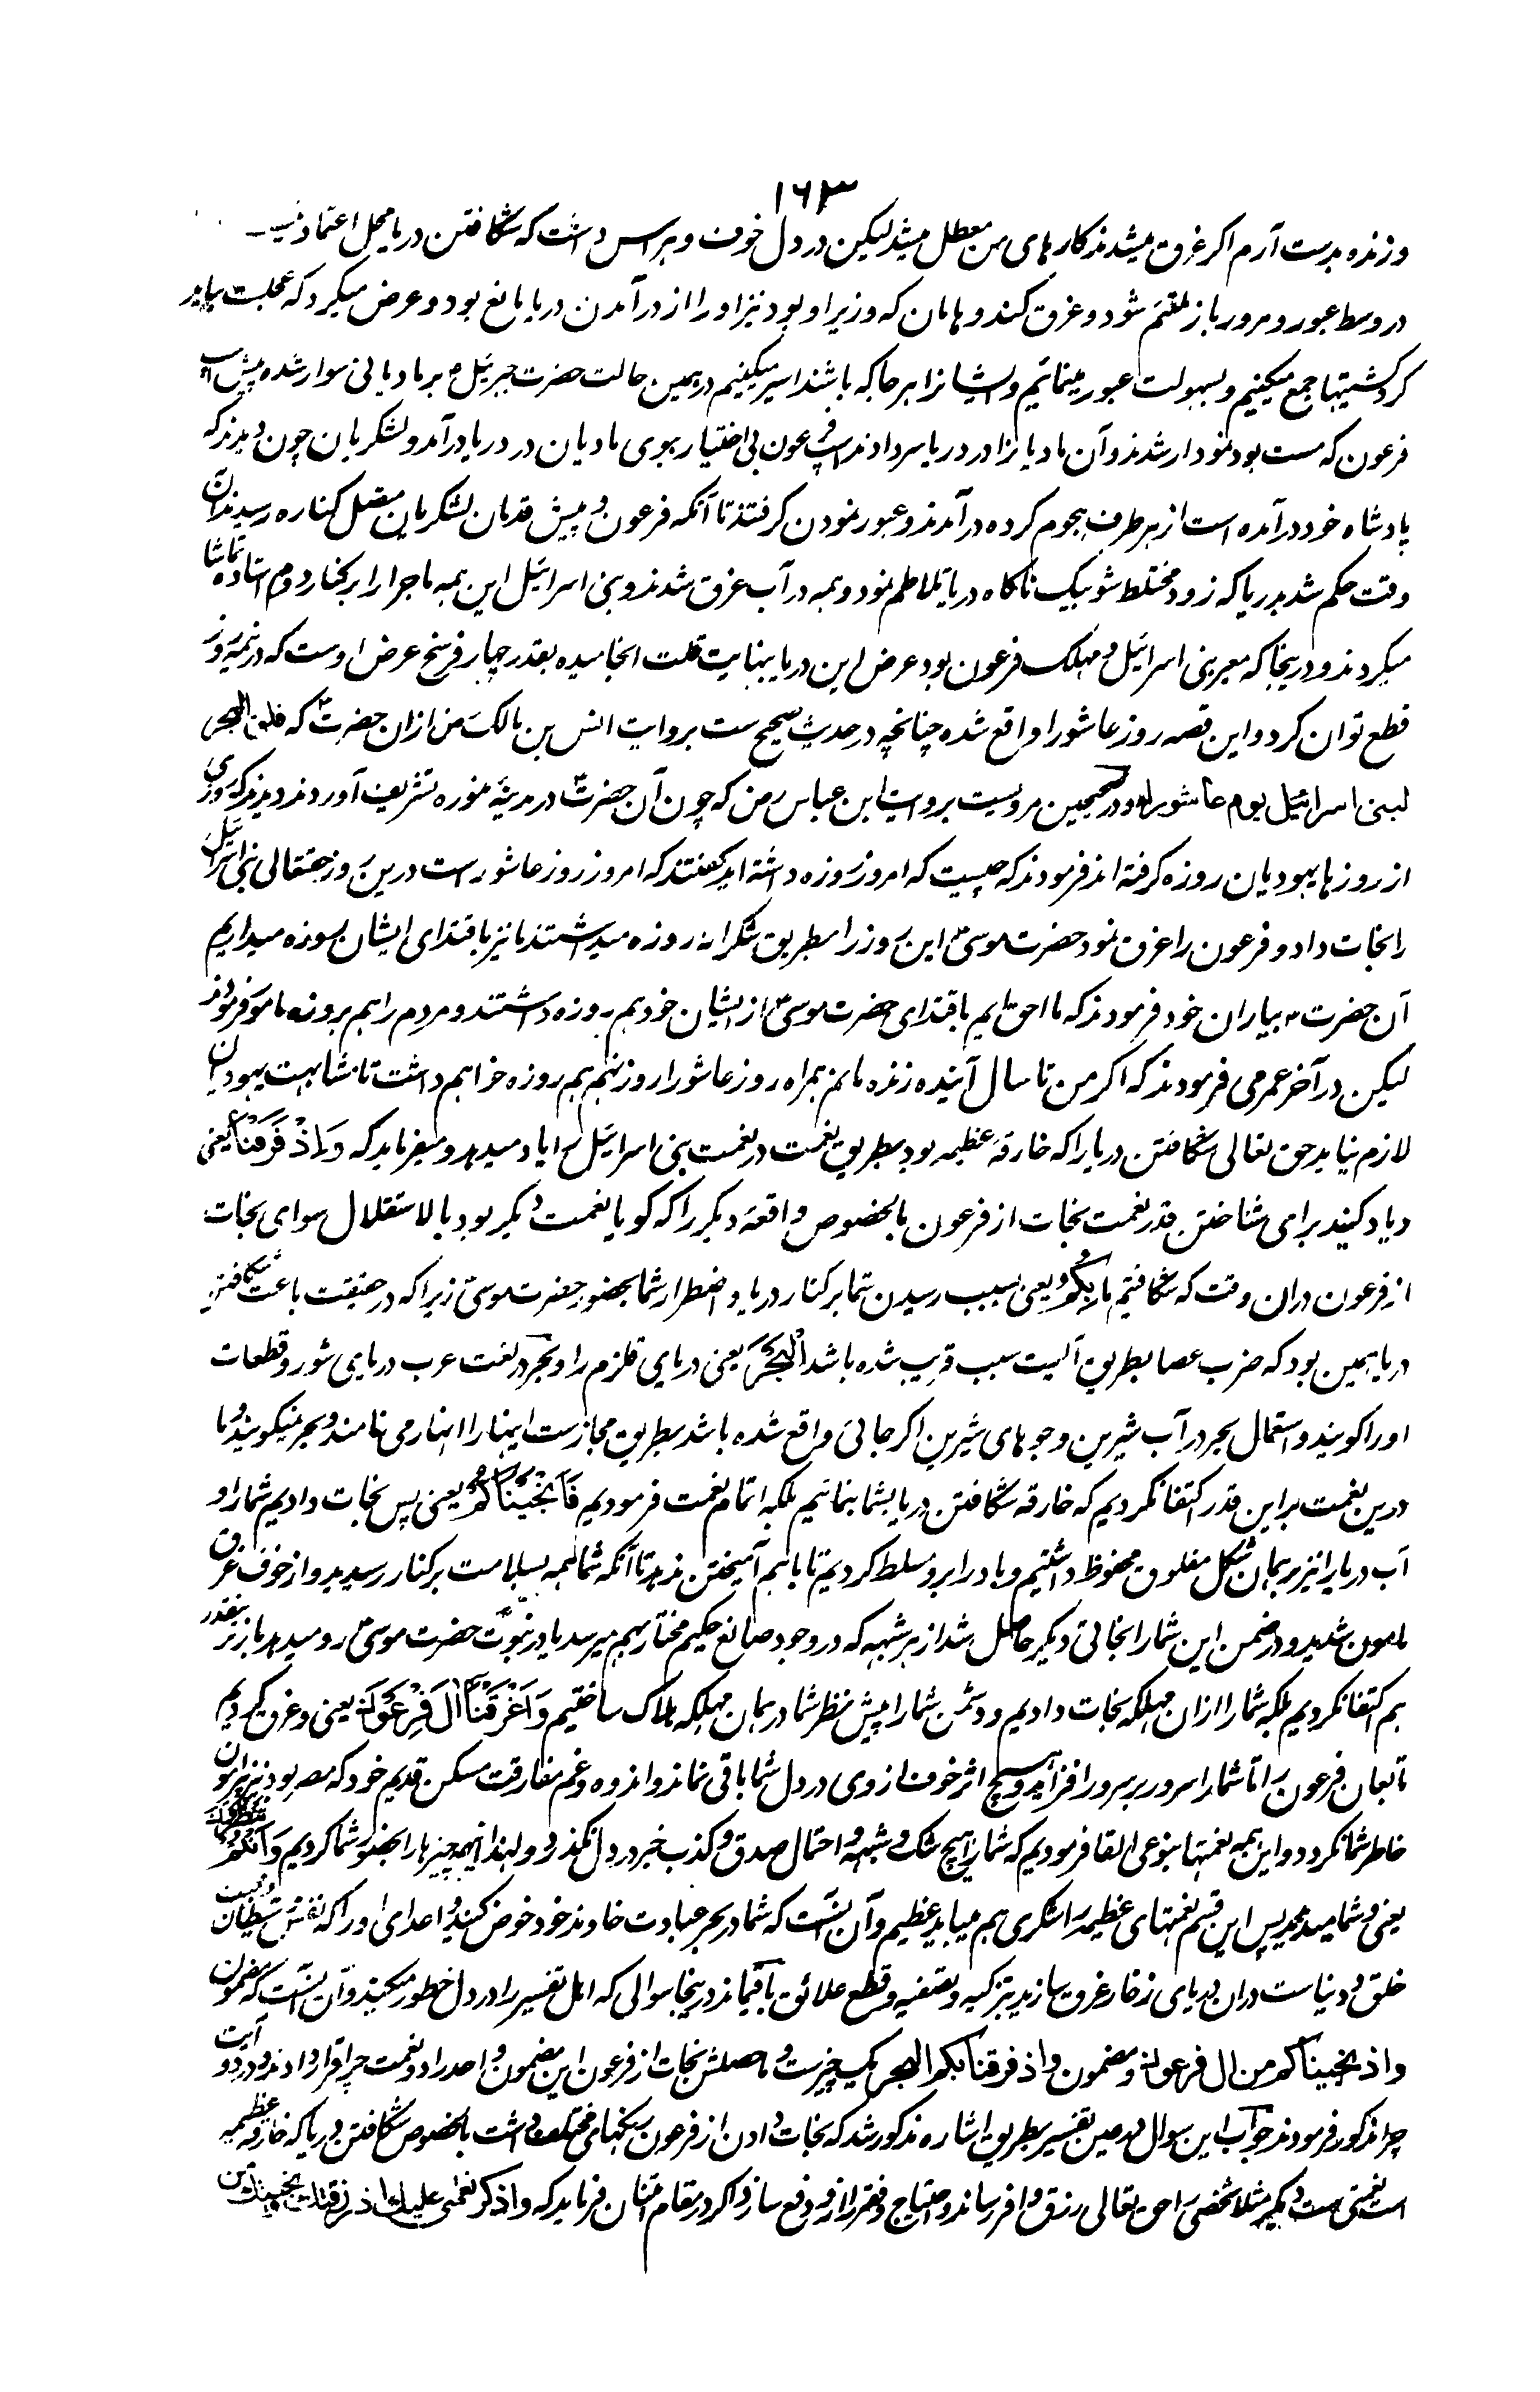 ۱۶۳
و زنده بدست آرم اکر غرق میشدند کارهای من معطل میشد لیکن در دل خوف و هراس داشت که شکافتن دریا محل اعتماد نیست
در وسط عبور و مرور باز ملتئم شود و غرق کند و هامان که وزیر او بود نیز او را از درآمدن دریا مانع بود و عرض میکرد که عجلت نباید
کرد کشتیها جمع میکنیم و بسهولت عبور مینمائیم و ایشانرا هر جا که باشند اسیر میکنیم درهمین حالت حضرت جبرئیل ع بر مادیانی سوار شده پیش اسپ
فرعون که مست بود نمودار شدند و آن مادیانرا در دریا سردادند اسپ فرعون بی اختیار ببوی مادیان در دریا درآمد و لشکریان چون دیدند که
پادشاه خود درآمده است از هر طرف هجوم کرده درآمدند و عبور نمودن کرفتند تا آنکه فرعون و پیش قدمان لشکریان متصل کناره رسیدند آن
وقت حکم شد بدریا که زود مختلط شو بیک ناکاه دریا تلاطم نمود و همه در آب غرق شدند و بنی اسرائیل این همه ماجرا را بر کنار دوم استاده تماشا
میکردند و درینجا که معبر بنی اسرائیل و مهلک فرعون بود عرض این دریا بنهایت قلت انجامیده بقدر چهار فرسخ عرض اوست که در نیمه روز
قطع توان کرد و این قصه روز عاشورا واقع شده چنانچه در حدیث صحیح ست بروایت انس بن مالک رض از ان حضرت ص که فلق البحر
لبنی اسرائیل یوم عاشوراء و در صحیحین مرویست بروایت ابن عباس رض که چون آن حضرت ص در مدینۀ منوره تشریف آوردند دیدند که روزی
از روزها یهودیان روزه کرفته اند فرمودند که چیست که امروز روزه داشته اید کفتند که امروز روز عاشوراست درین روز حقتعالی بنی اسرائیل
را نجات داد و فرعون را غرق نمود حضرت موسی ع این روز را بطریق شکرانه روزه میداشتند ما نیز باقتدای ایشان روزه میداریم
آن حضرت ص بیاران خود فرمودند که ما احق ایم باقتدای حضرت موسی ع از ایشان خود هم روزه داشتند و مردم را هم بروزه مامور فرمودند
لیکن در آخر عمر می فرمودند که اکر من تا سال آینده زنده مانم همراه روز عاشورا روز نهم هم روزه خواهم داشت تا مشابهت یهودیان
لازم نیاید حق تعالی شکافتن دریا را که خارقۀ عظیمه بود بطریق نعمت در نعمت بنی اسرائیل را یاد میدهد و میفرماید که وَاِذْ فَرَقْنَا یعنی
و یاد کنید برای شناختن قدر نعمت نجات از فرعون بالخصوص واقعۀ دیکر را که کویا نعمت دیکر بود بالاستقلال سوای نجات
از فرعون دران وقت که شکافتیم ما بِکُمُ یعنی بسبب رسیدن شما بر کنار دریا و اضطرار شما بحضور حضرت موسی ع زیرا که در حقیقت باعث شکافتن
دریا همین بود که ضرب عصا بطریق آلیت سبب قریب شده باشد الْبَحْرَ یعنی دریای قلزم را و بحر در لغت عرب دریای شور و قطعات
او را کویند و استعمال بحر در آب شیرین و جوهای شیرین اکر جائی واقع شده باشد بطریق مجازست اینها را انهار می نامند و بحر نمیکویند و ما
درین نعمت بر این قدر اکتفا نکردیم که خارقه شکافتن دریا بشما بنمائیم بلکه اتمام نعمت فرمودیم فَاَنْجَیْنَاکُمْ یعنی پس نجات دادیم شما را و
آب دریا را نیز برهمان شکل مفلوق محفوظ داشتیم و باد را برو مسلط کردیم تا باهم آمیختن ندهد تا آنکه شما همه بسلامت بر کنار رسیدید و از خوف غرق
مامون شدید و در ضمن این شما را نجاتی دیکر حاصل شد از هر شبهه که در وجود صانع حکیم مختار بهم میرسد یا در نبوت حضرت موسی ع رو میدهد باز بر اینقدر
هم اکتفا نکردیم بلکه شما را ازان مهلکه نجات دادیم و دشمن شما را پیش نظر شما در همان مهلکه هلاک ساختیم وَاَغْرَقْنَا اٰلَ فِرْعَوْنَ یعنی و غرق کردیم
تابعان فرعون را تا شما را سرور بر سرور افزاید و هیچ اثر خوف از وی در دل شما باقی نماند و اندوه و غم مفارقت مسکن قدیم خود که مصر بود نیز پیرامون
خاطر شما نکردد و این همه نعمتها بنوعی القا فرمودیم که شما را هیچ شک و شبهه و احتمال صدق و کذب خبر در دل نکذرد و لهذا اینهمه چیزها را بحضور شما کردیم وَاَنْتُمْ تَنْظُرُوْنَ
یعنی و شما میدیدید پس این قسم نعمتهای عظیمه را شکری هم میباید عظیم و آن اینست که شما در بحر عبادت خاوند خود خوض کنید و اعدای او را که نفس و شیطان و محبت
خلق و دنیاست دران دریای زخار غرق سازید بتزکیه و تصفیه و قطع علائق باقیماند درینجا سوالی که اهل تفسیر را در دل خطور میکند و آن اینست که مضمون
واذ نجیناکم من ال فرعون و مضمون واذ فرقنا بکم البحر یک چیزست و حاصلش نجات از فرعون این مضمون واحد را دو نعمت چرا قرار دادند و در دو آیت
چرا مذکور فرمودند جواب این سوال در عین تفسیر بطریق اشاره مذکور شد که نجات دادن از فرعون رنکهای مختلف داشت بالخصوص شکافتن دریا که خارقه عظیمه
است نعمتی است دیکر مثلا شخصی را حق تعالی رزق وافر رساند و احتیاج و فقر را ازو دفع سازد اکر در مقام امتنان فرماید که واذکر نعمتی علیک اذ رزقتک و نجیتک من